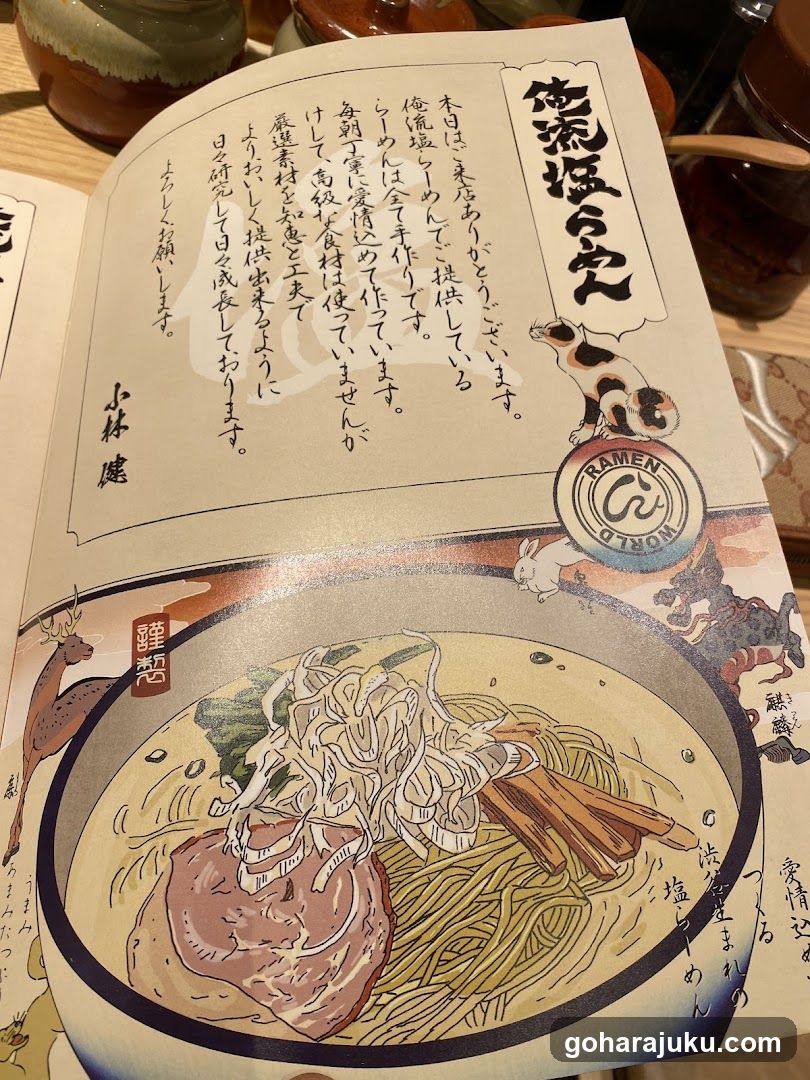 俺流塩らーめん
本日はご来店ありがとうございます。
俺流塩らーめんでご提供している
らーめんは全て手作りです。
毎朝丁寧に愛情込めて作っています。
けして、高級な食材は使っていませんが
厳選素材を知恵と工夫で
よりおいしく提供出来るように
日々研究して日々成長しております。
よろしくお願いします。
小林 健
RAMEN
WORLD
謹製
麒麟
きりん
愛情込め
つくる
渋谷生まれの
塩らーめん
うまみ
goharajuku.com